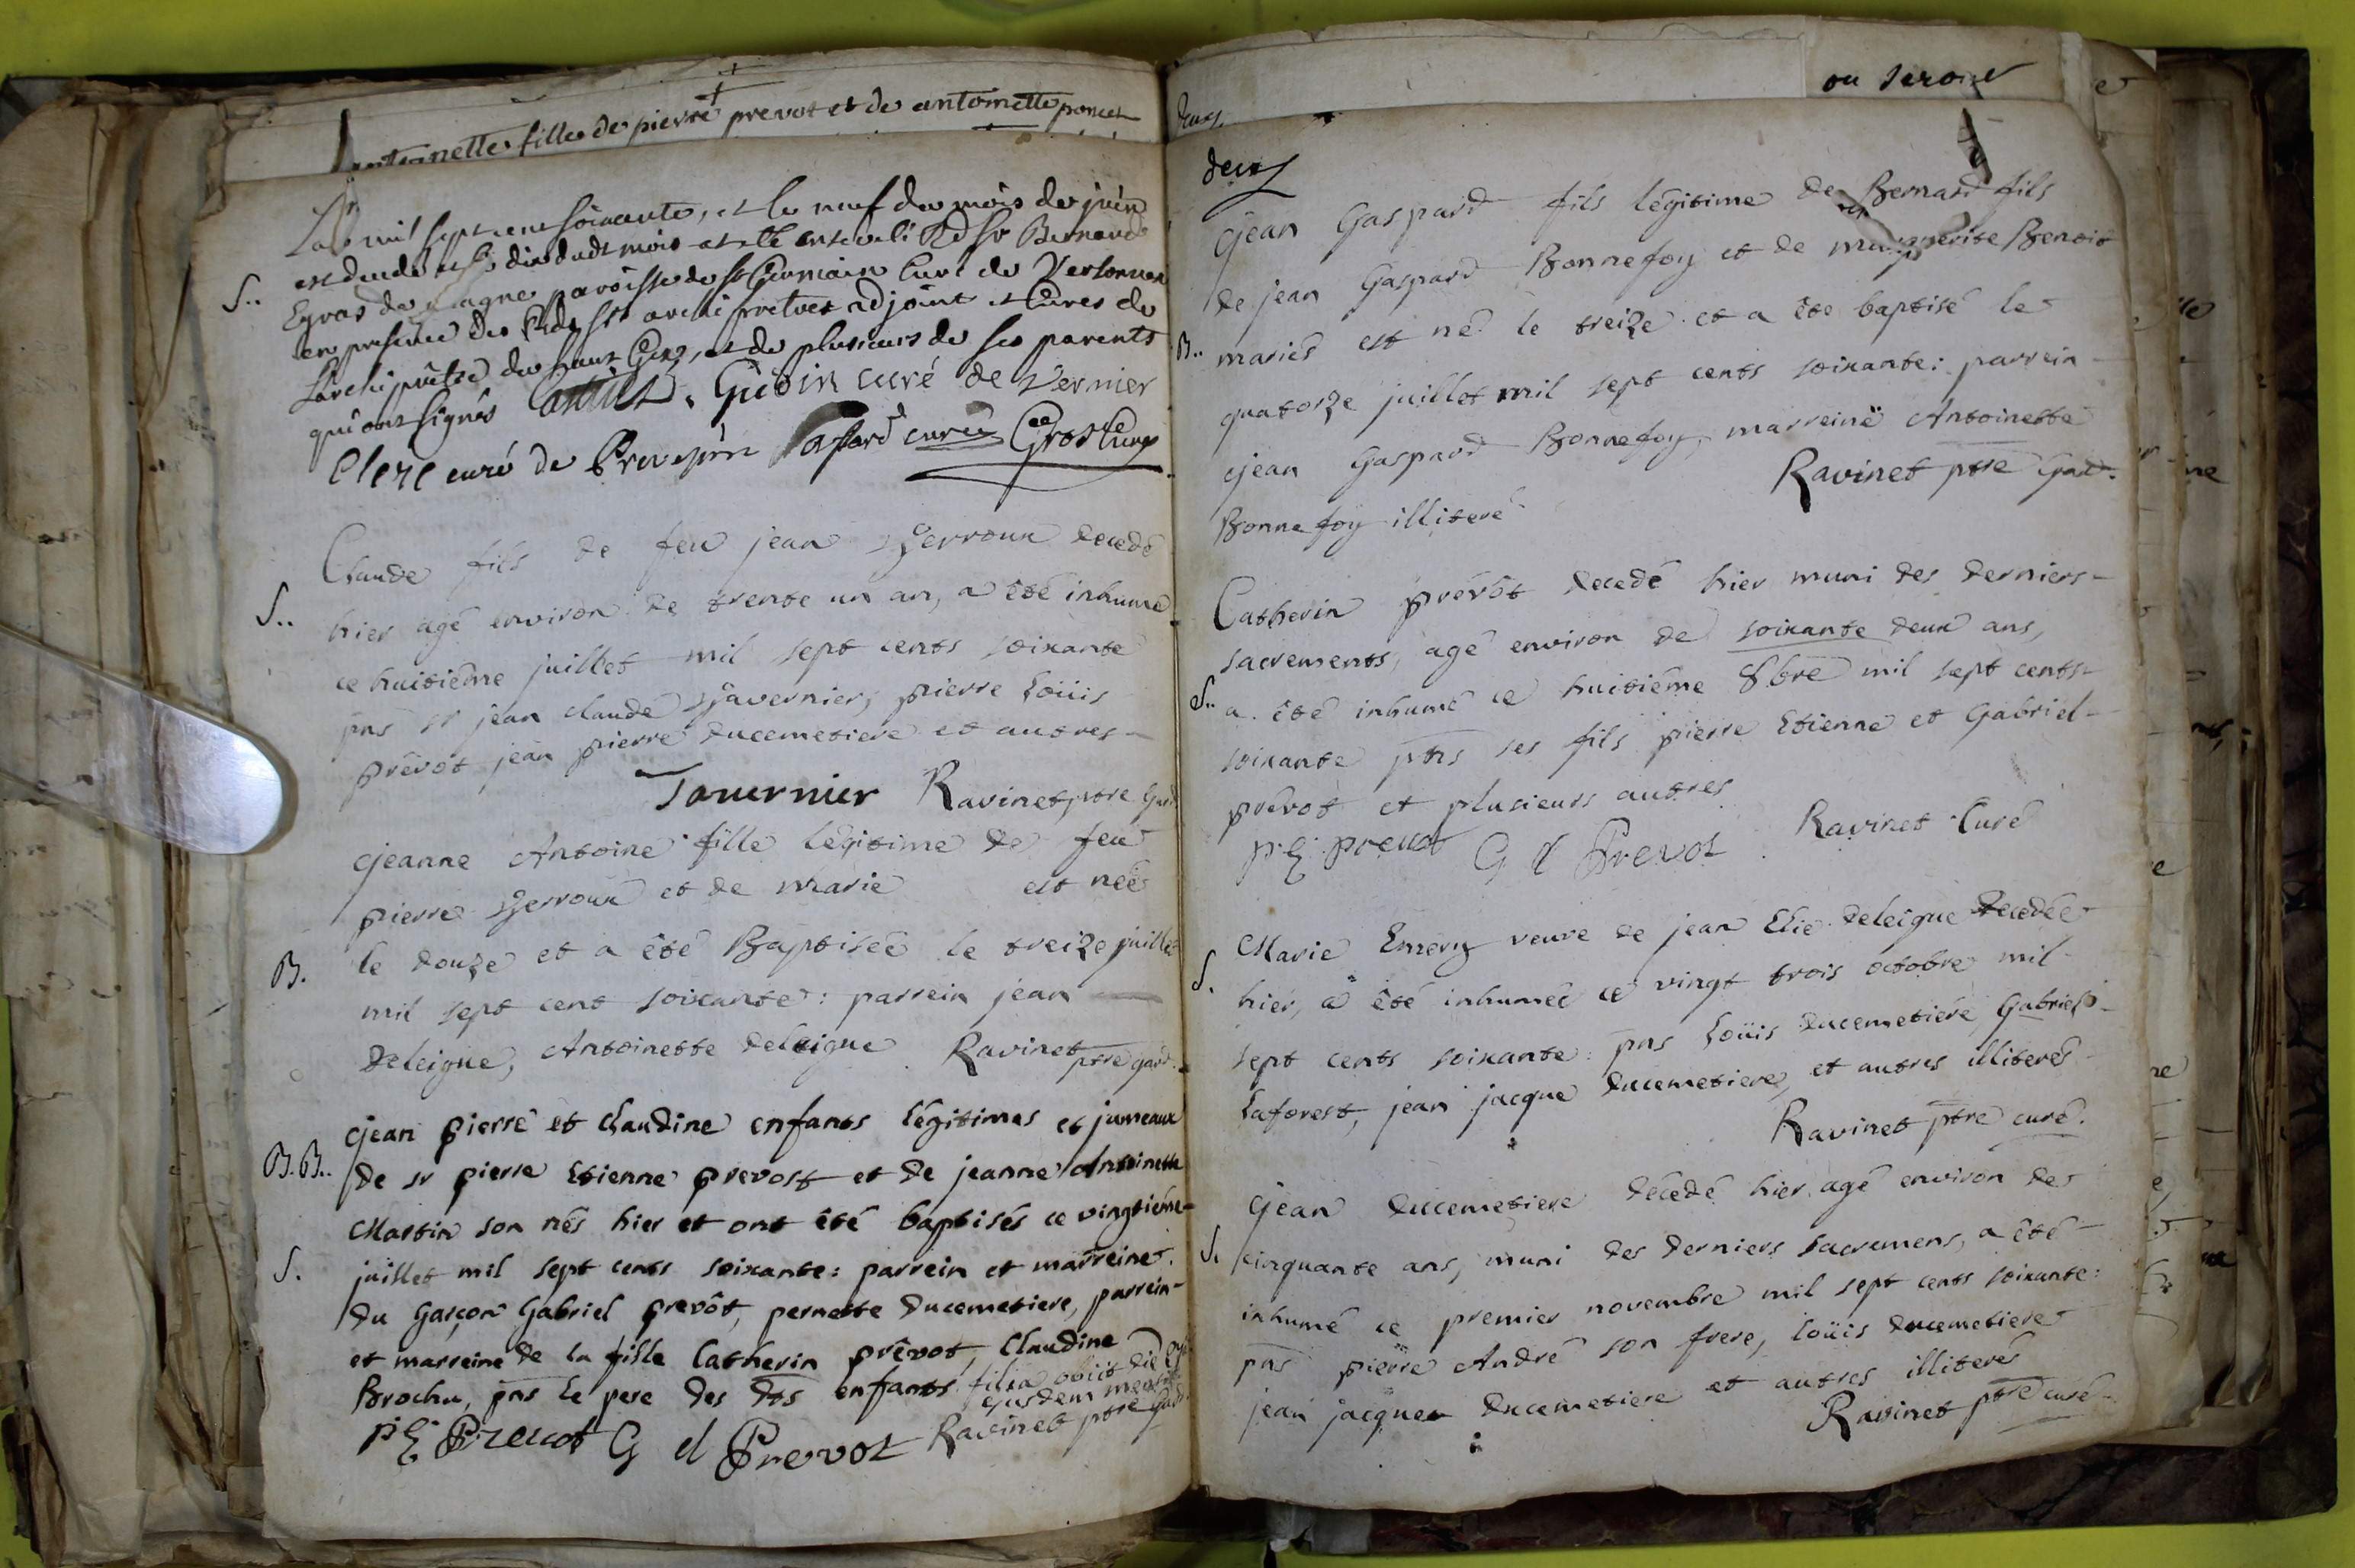 antoinette fille de pierre prevot et de antoinette poncet
L'an mil sept cent soixante, et le neuf du mois de juin
est decedé et le dix dudt mois a été enseveli Rd Sr Bernard
S.. Egras de paroisse de St Germain Curé de Versonnex
en presence des Rds Srs archiprêtres adjoint et Cures de
L'archiprêtré du haut Gex, et de plusieurs de ses parents
qui ont signés Castin. Gudin curé de Vernier
Clerc curé de Prevessin Passard curé Gros Curé
Claude fils de feu jean Verroux decedé
S.. hier agé environ de trente un an, a êté inhumé
ce huitiéme juillet mil sept cents soixante
pns sr jean claude Tavernier, pierre Loüis
prévôt jean pierre ducemetiere et autres
Tavernier Ravinet ptre Gard
jeanne Antoine fille légitime de feu
pierre Verroux et de marie est née
B. le douze et a êté Baptisée le treize juillet
mil sept cent soixante: parrein jean
Deleigue, Antoinette deleigue Ravinet ptre gard.
jean pierre et Claudine enfants légitimes et jumeaux
B.B.. de sr pierre Etienne prevost et de jeanne Antoinette
Martin son nés hier et ont êté baptisés ce vingtiéme
S. juillet mil sept cents soixante: parrein et marreine
du garçon Gabriel prevôt, pernette ducemetiere, parrein
et marreine de la fille Catherin prêvot, Claudine
Brochu, pns le pere des dts enfants filia obiit die
ejusdem mensis
P E Prevot G el Prevot Ravinet ptre gard
ou sera
deux
deux
jean Gaspard fils légitime de Bernard fils
de jean Gaspard Bonnefoy et de marguerite Benoit
B.. mariés est né le treize et a êté baptisé le
quatorze juillet mil sept cents soixante: parrein
jean Gaspard Bonnefoy, marreine Antoinette
Bonnefoy illiteré Ravinet ptre Gard.
Catherin prévôt decedé hier muni des derniers
sacrements, agé environ de soixante deux ans,
S.. a êté inhumé ce huitiéme 8bre mil sept cents
soixante pns ses fils pierre Etienne et Gabriel
prévot et plusieurs autres
P E prevot G el Prevot Ravinet Curé
Marie Emery veuve de jean Elie deleigue decedée
S. hier, a êté inhumée ce vingt trois octobre mil
sept cents soixante: pns Loüis ducemetiére, Gabriel
Laforest, jean jacque ducemetiere, et autres illiterés
Ravinet ptre curé.
jean ducemetiere décedé hier agé environ de
S. cinquante ans, muni des derniers sacremens, a êté
inhumé ce premier novembre mil sept cents soixante:
pns pierre André son frere, loüis ducemetiere
jean jacques ducemetiere et autres illiterés
Ravinet ptre curé